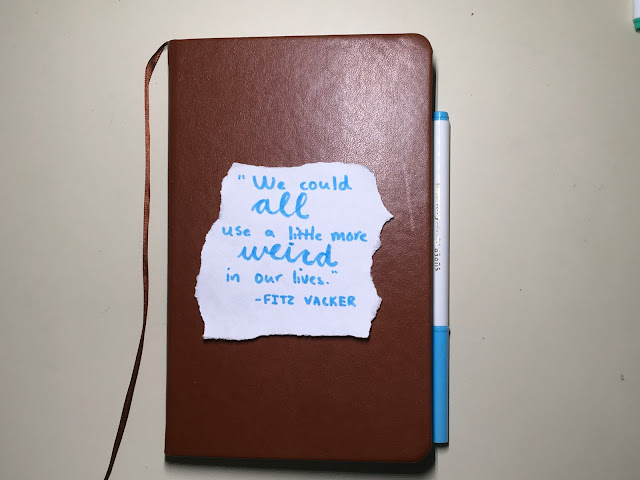 "We could
all
use a little more
weird
in our lives."
-FITZ VACKER